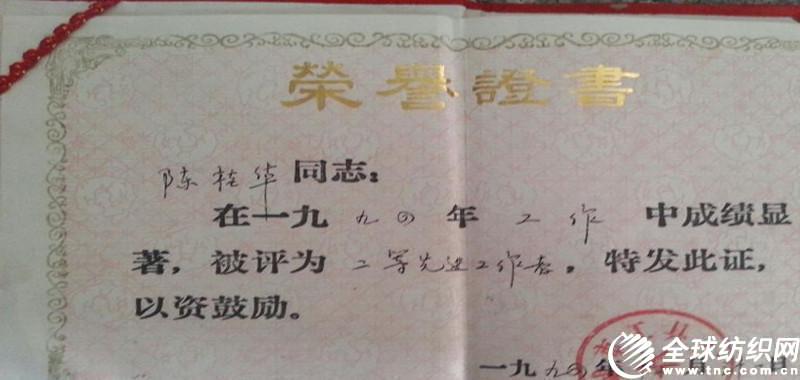 榮譽證書
陈桂华同志：
在一九九四年工作中成绩显
著，被评为二等先进工作者，特发此证，
以资鼓励。
一九九四年 月 日
全球纺织网
www.tnc.com.cn